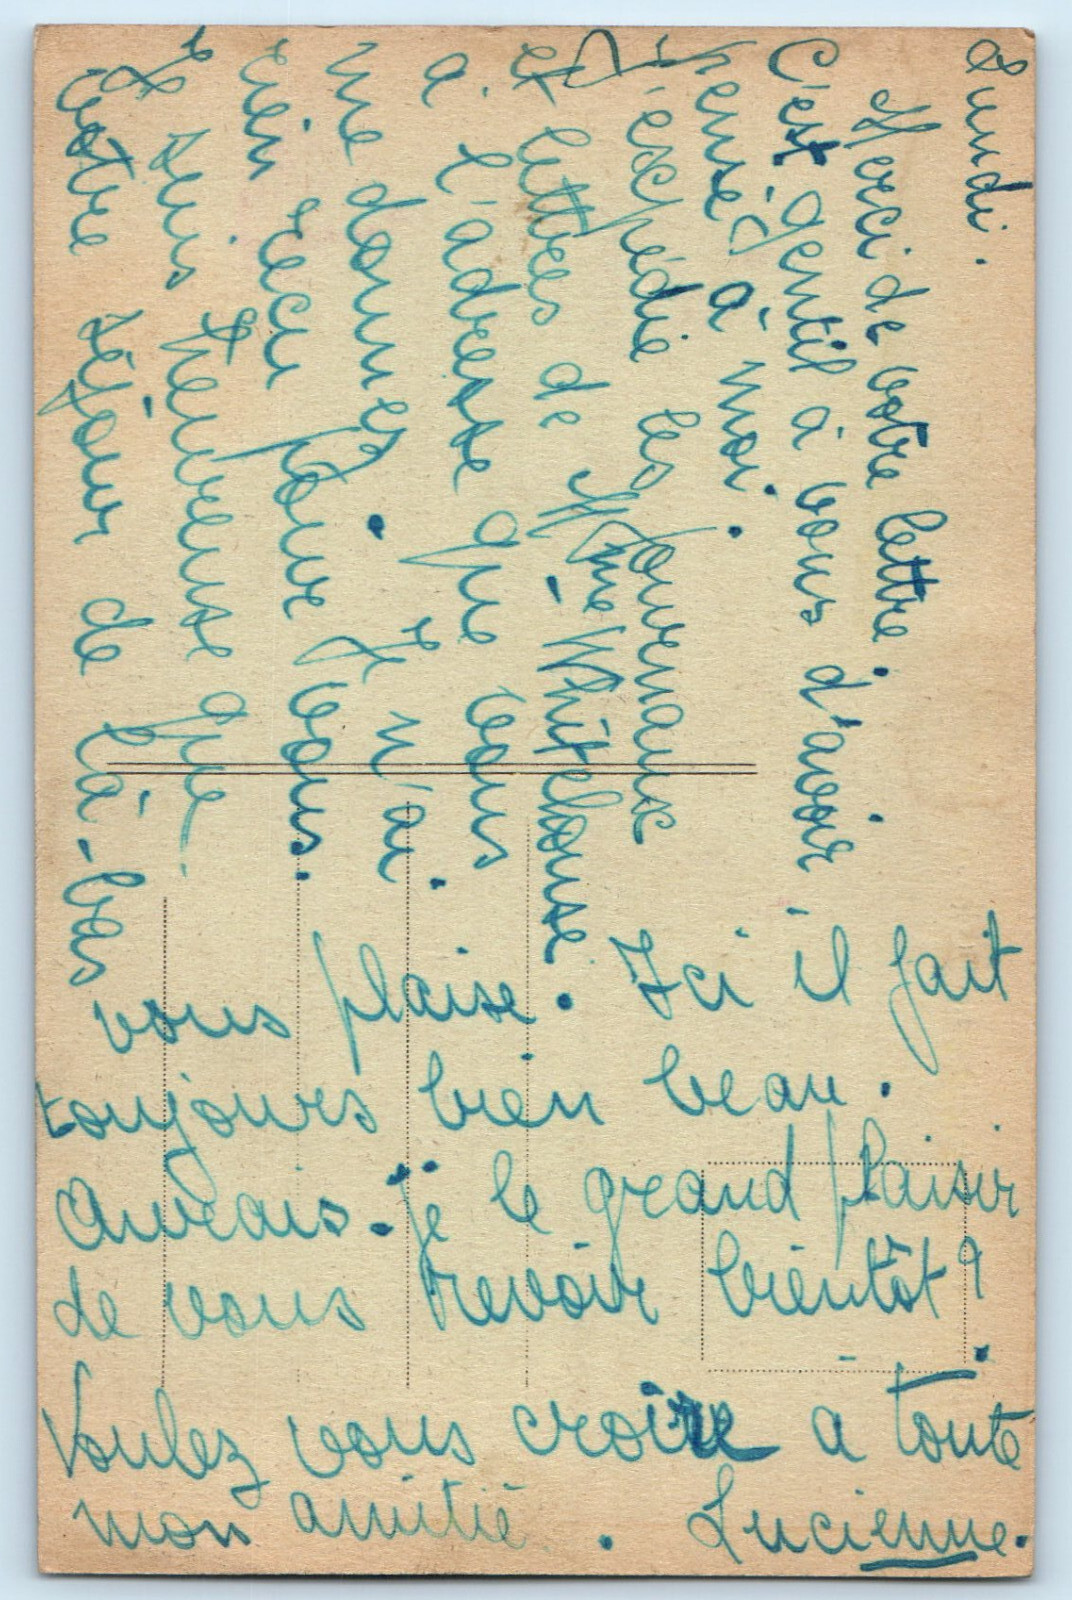 Lundi.
Merci de votre lettre.
C'est gentil à vous d'avoir
pensé à moi.
J'expédie les journaux
et lettres de Mme Whitehouse
à l'adresse que vous
me donnez. Je n'ai
rien reçu pour vous.
Je suis heureuse que
votre séjour de là-bas
vous plaise. Ici il fait
toujours bien beau.
Aurais-je le grand plaisir
de vous revoir bientôt?
Voulez vous croire à toute
mon amitié. Lucienne.